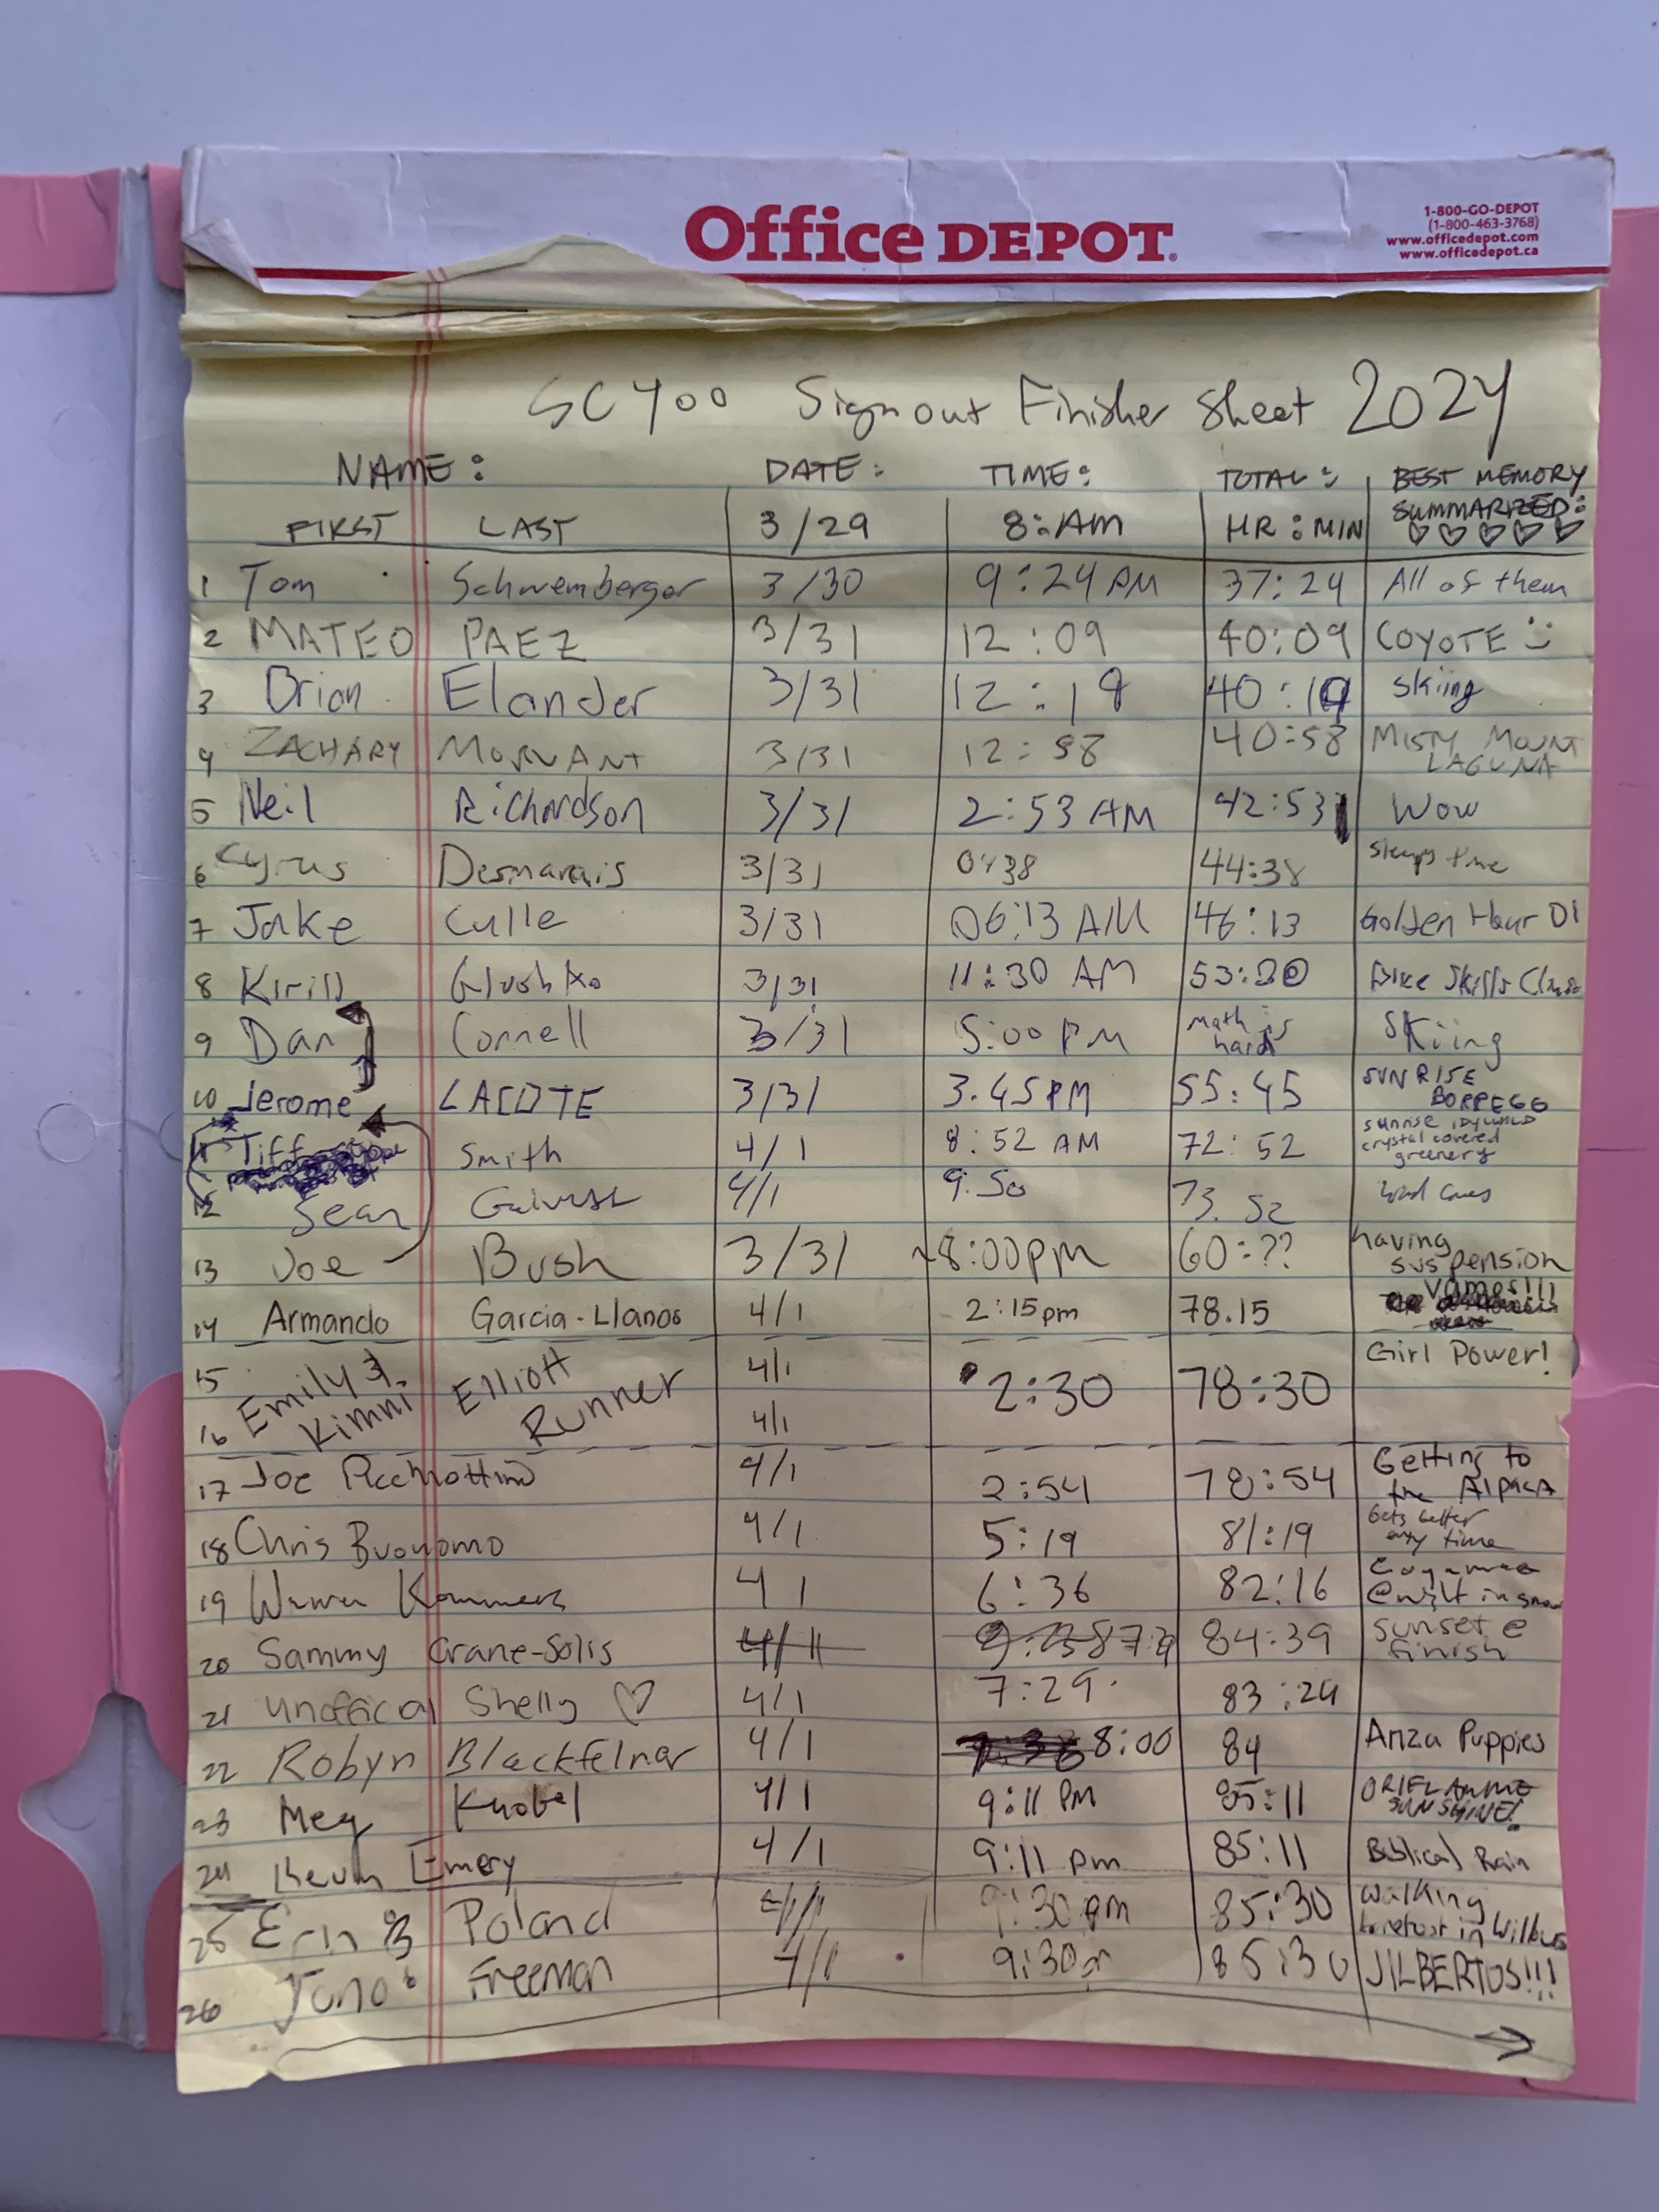 Office DEPOT.
1-800-GO-DEPOT
(1-800-463-3768)
www.officedepot.com
www.officedepot.ca
SC400 Sign out Finisher Sheet 2024
NAME: DATE: TIME: TOTAL: BEST MEMORY SUMMARIZED: ♡♡♡♡♡
FIRST LAST 3/29 8:AM HR:MIN
1 Tom Schwemberger 3/30 9:24 PM 37:24 All of them
2 MATEO PAEZ 3/31 12:09 40:09 COYOTE :)
3 Brian Elander 3/31 12:19 40:19 skiing
4 ZACHARY MORVANT 3/31 12:58 40:58 MISTY MOUNT LAGUNA
5 Neil Richardson 3/31 2:53 AM 42:53 Wow
6 Cyrus Desmarais 3/31 0438 44:38 sleepy time
7 Jake Culle 3/31 06:13 AM 46:13 Golden Hour D1
8 Kirill Glushko 3/31 11:30 AM 53:30 Bike Skills Class
9 Dan Connell 3/31 5:00 PM math is hard Skiing
10 Jerome LACOTE 3/31 3.45PM 55:45 SUNRISE BORREGO
11 Tiff Smith 4/1 8:52 AM 72:52 sunrise IDYLWILD crystal covered greenery
12 Sean 4/1 9.50 73.52 wind caves
13 Joe Bush 3/31 ~8:00pm 60:?? having suspension
14 Armando Garcia-Llanos 4/1 2:15pm 78.15 Vamos!!!
15 Emily & Elliott 4/1 2:30 78:30 Girl Power!
16 Kimmi Runner 4/1
17 Joe 4/1 2:54 78:54 Getting to the AlpacA
18 Chris Buonomo 4/1 5:19 81:19 Gets better every time
19 Kommers 4 1 6:36 82:16 @ in snow
20 Sammy Crane-Solis 4/1 84:39 sunset @ finish
21 unofficial Shelly ♡ 4/1 7:29. 83:29
22 Robyn Blackfelner 4/1 8:00 84 Anza Puppies
23 Meg Knobel 4/1 9:11 PM 85:11 ORIFLAMME SUNSHINE!
24 Kevin Emery 4/1 9:11 pm 85:11 Biblical Rain
25 Erin & Poland 4/1 9:30 pm 85:30 walking barefoot in Wilbus
26 Jono Freeman 4/1 9:30p 85:30 JILBERTOS!!!
→